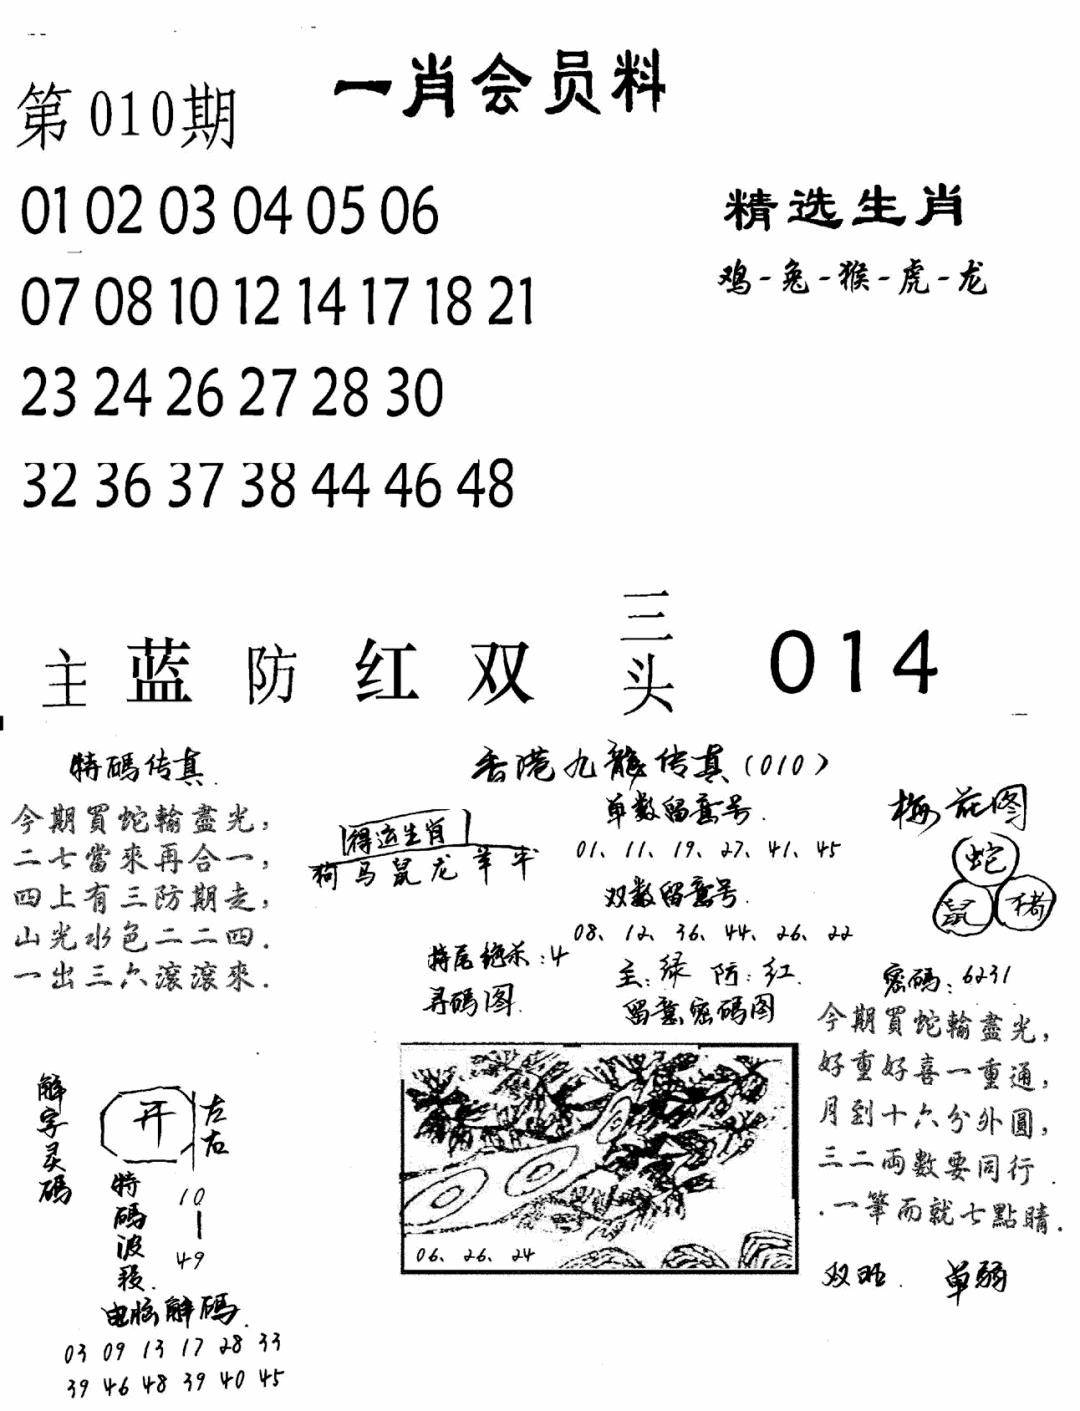 第010期
一肖会员料
01 02 03 04 05 06
07 08 10 12 14 17 18 21
23 24 26 27 28 30
32 36 37 38 44 46 48
精选生肖
鸡-兔-猴-虎-龙
主 蓝 防 红 双 三头 014
特碼传真.
今期買蛇輸盡光，
二七當來再合一，
四上有三防期走，
山光水色二二四.
一出三六滾滾來.
香港九龍传真(010)
得运生肖
狗马鼠龙羊牛
单数留意号.
01、11、19、27、41、45
双数留意号.
08、12、36、44、26、22
特尾绝杀:4
主:绿 防:红.
寻码图.
留意密码图
06、26、24
梅花图
蛇
鼠
猪
密码:6231
今期買蛇輸盡光，
好重好喜一重通，
月到十六分外圓，
三二両數要同行.
一筆而就七點睛.
双旺. 单弱
解字灵碼
开
左右
特碼波段.
10
|
49
电脑解碼.
03 09 13 17 28 33
39 46 48 39 40 45